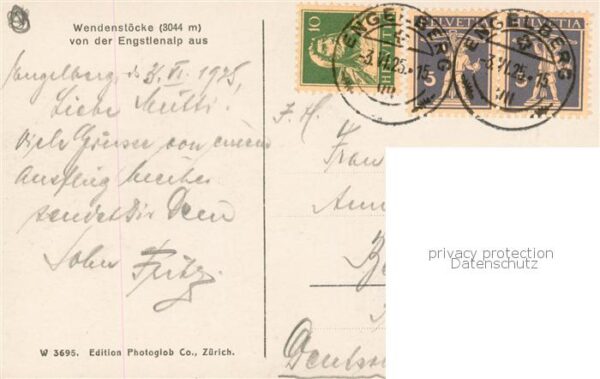 Wendenstöcke (3044 m)
von der Engstlenalp aus
Engelberg d. 3. VI. 1925.
Liebe Mutti!
Viele Grüsse von einem
Ausflug hierher
sendet Dir Dein
Sohn Fritz.
W 3695. Edition Photoglob Co., Zürich.
10
HELVETIA
HELVETIA
HELVETIA
5
5
ENGELBERG
-3.VI.25.-15
ENGELBERG
-3.VI.25.-15
Frau
privacy protection
Datenschutz